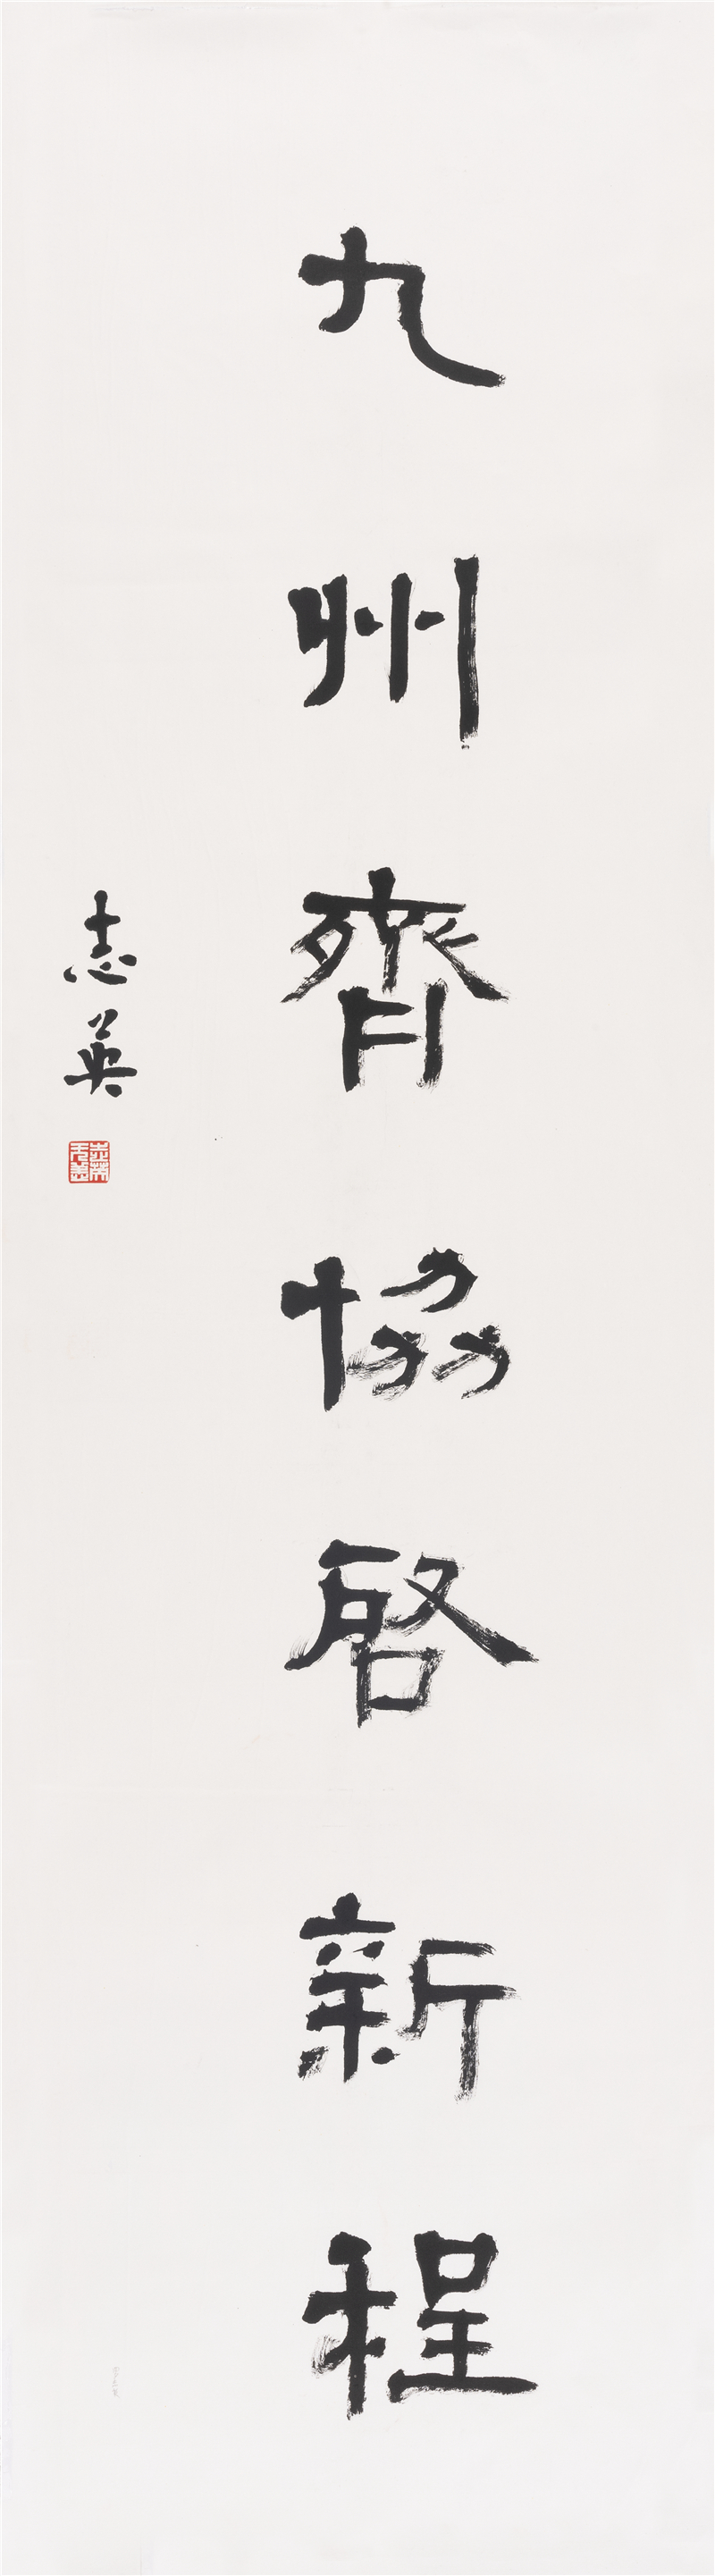 九州齊協啓新程
志英